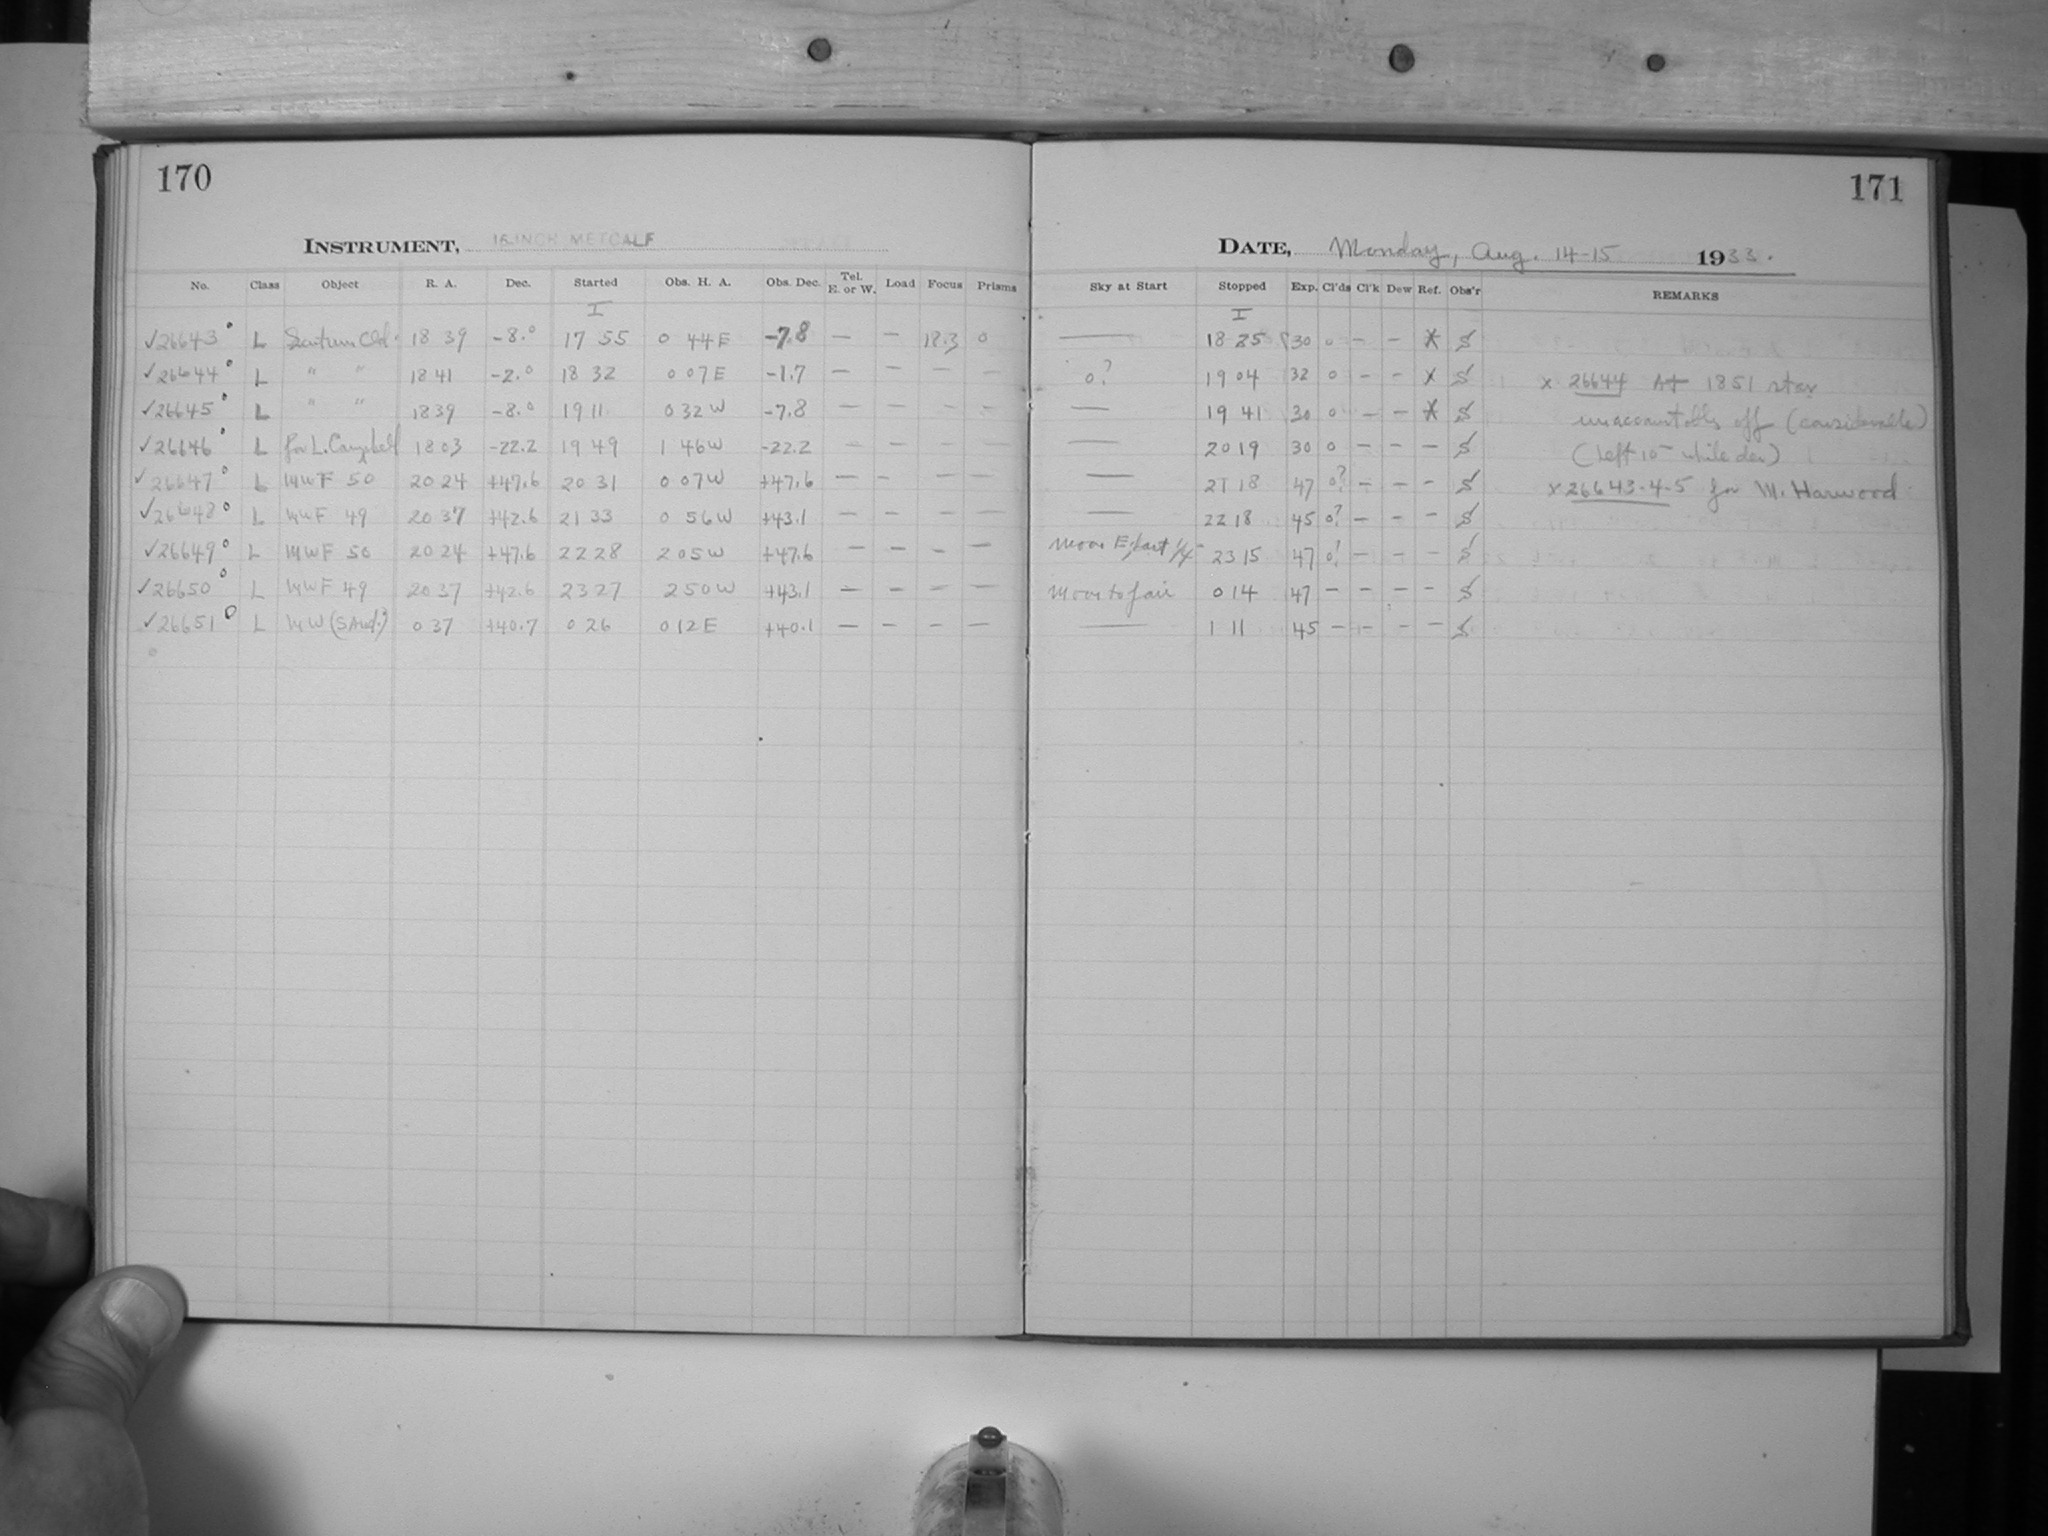 170
INSTRUMENT, 16-INCH METCALF
No. Class Object R. A. Dec. Started Obs. H. A. Obs. Dec. Tel. E. or W. Load Focus Prisms
I
✓26643° L Scutum Cld. 18 39 -8.° 17 55 0 44 E -7.8 — — 18.3 0
✓26644° L " " 18 41 -2.° 18 32 0 07 E -1.7 — — — —
✓26645° L " " 18 39 -8.° 19 11 0 32 W -7.8 — — — —
✓26646° L for L. Campbell 18 03 -22.2 19 49 1 46 W -22.2 — — — —
✓26647° L MWF 50 20 24 +47.6 20 31 0 07 W +47.6 — — — —
✓26648° L MWF 49 20 37 +42.6 21 33 0 56 W +43.1 — — — —
✓26649° L MWF 50 20 24 +47.6 22 28 2 05 W +47.6 — — — —
✓26650° L MWF 49 20 37 +42.6 23 27 2 50 W +43.1 — — — —
✓26651° L MW (SAnd.) 0 37 +40.7 0 26 0 12 E +40.1 — — — —
171
DATE, Monday, Aug. 14-15 1933.
Sky at Start Stopped Exp. Cl'ds Cl'k Dew Ref. Obs'r REMARKS
I
— 18 25 30 0 — — * S
0? 19 04 32 0 — — x S x 26644 At 1851 star
— 19 41 30 0 — — * S unaccountably off (considerable)
— 20 19 30 0 — — — S (left 10 while dev)
— 21 18 47 0? — — — S x 26643-4-5 for M. Harwood
— 22 18 45 0? — — — S
Moon E, last 1/4 23 15 47 0? — — — S
Moon to fair 0 14 47 — — — — S
— 1 11 45 — — — — S